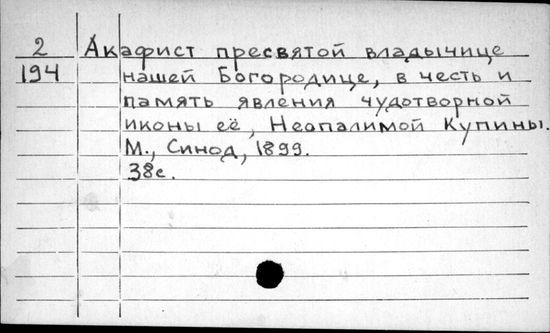 2 Акафист пресвятой владычице
194 нашей Богородице, в честь и
память явления чудотворной
иконы её, Неопалимой Купины.
М., Синод, 1899.
38с.